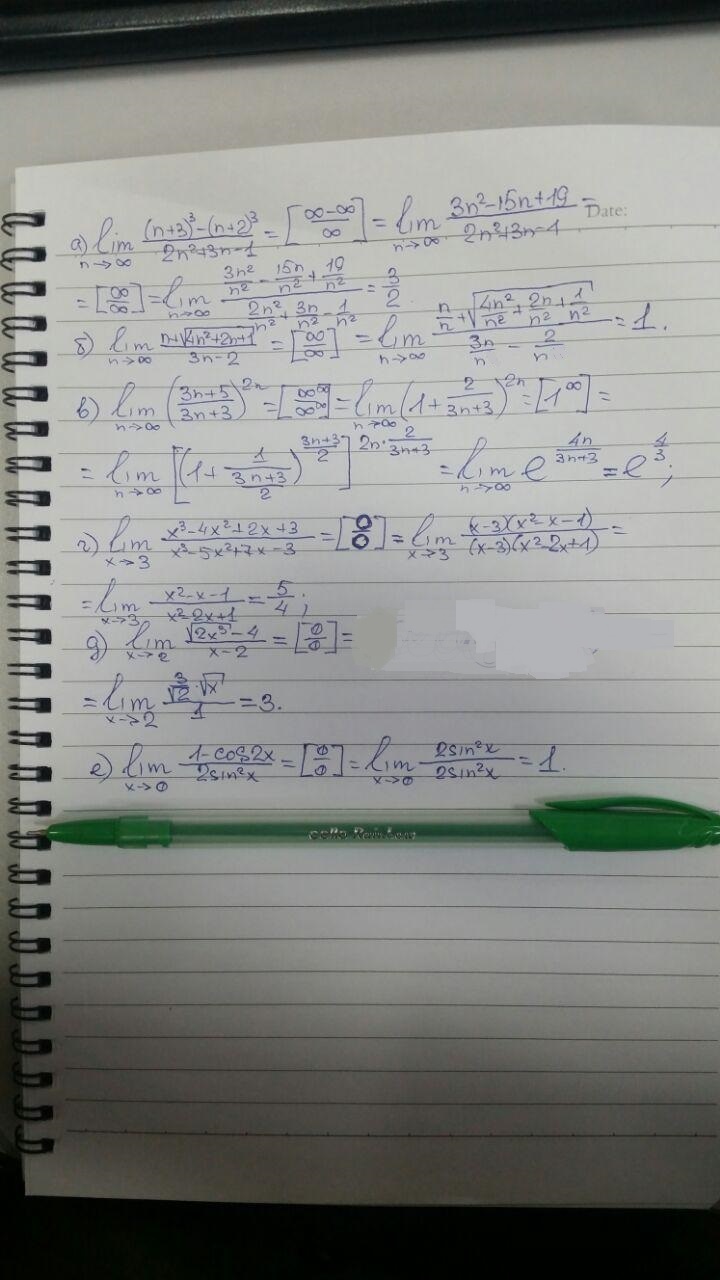 а) lim n→∞ ((n+3)³-(n+2)³)/(2n²+3n-1) = [(∞-∞)/∞] = lim n→∞ (3n²-15n+19)/(2n²+3n-1) =
Date:
= [∞/∞] = lim n→∞ (3n²/n² - 15n/n² + 19/n²)/(2n²/n² + 3n/n² - 1/n²) = 3/2.
б) lim n→∞ (n+√(4n²+2n+1))/(3n-2) = [∞/∞] = lim n→∞ (n/n + √(4n²/n² + 2n/n² + 1/n²))/(3n/n - 2/n) = 1.
в) lim n→∞ ((3n+5)/(3n+3))^(2n) = [∞^∞/∞^∞] = lim n→∞ (1 + 2/(3n+3))^(2n) = [1^∞] =
= lim n→∞ [(1 + 1/((3n+3)/2))^((3n+3)/2)]^(2n·2/(3n+3)) = lim n→∞ e^(4n/(3n+3)) = e^(4/3);
г) lim x→3 (x³-4x²+2x+3)/(x³-5x²+7x-3) = [0/0] = lim x→3 ((x-3)(x²-x-1))/((x-3)(x²-2x+1)) =
= lim x→3 (x²-x-1)/(x²-2x+1) = 5/4;
д) lim x→2 (√(2x³)-4)/(x-2) = [0/0] =
= lim x→2 (3/√2·√x)/1 = 3.
е) lim x→0 (1-cos2x)/(2sin²x) = [0/0] = lim x→0 (2sin²x)/(2sin²x) = 1.
cello Rainbow